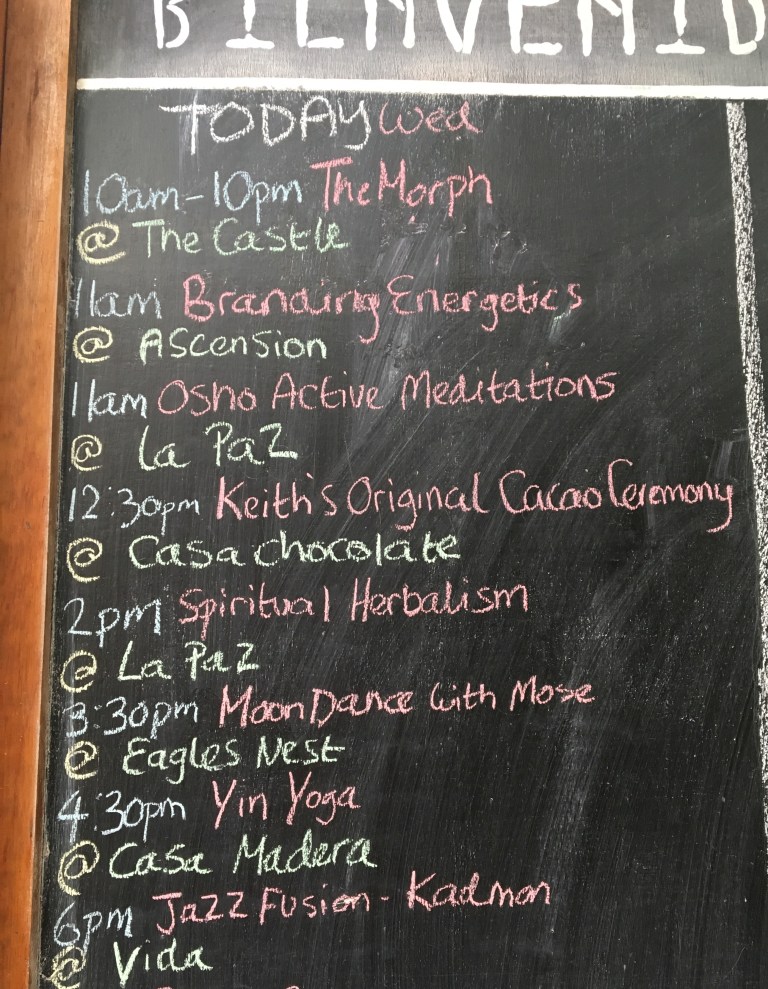 BIENVENID
TODAY Wed
10am-10pm The Morph
@ The Castle
11am Branding Energetics
@ Ascension
11am Osho Active Meditations
@ La Paz
12:30pm Keith's Original Cacao Ceremony
@ Casa chocolate
2pm Spiritual Herbalism
@ La Paz
3:30pm Moon Dance with Mose
@ Eagles Nest
4:30pm Yin Yoga
@ Casa Madera
6pm Jazz Fusion - Kadmon
@ Vida